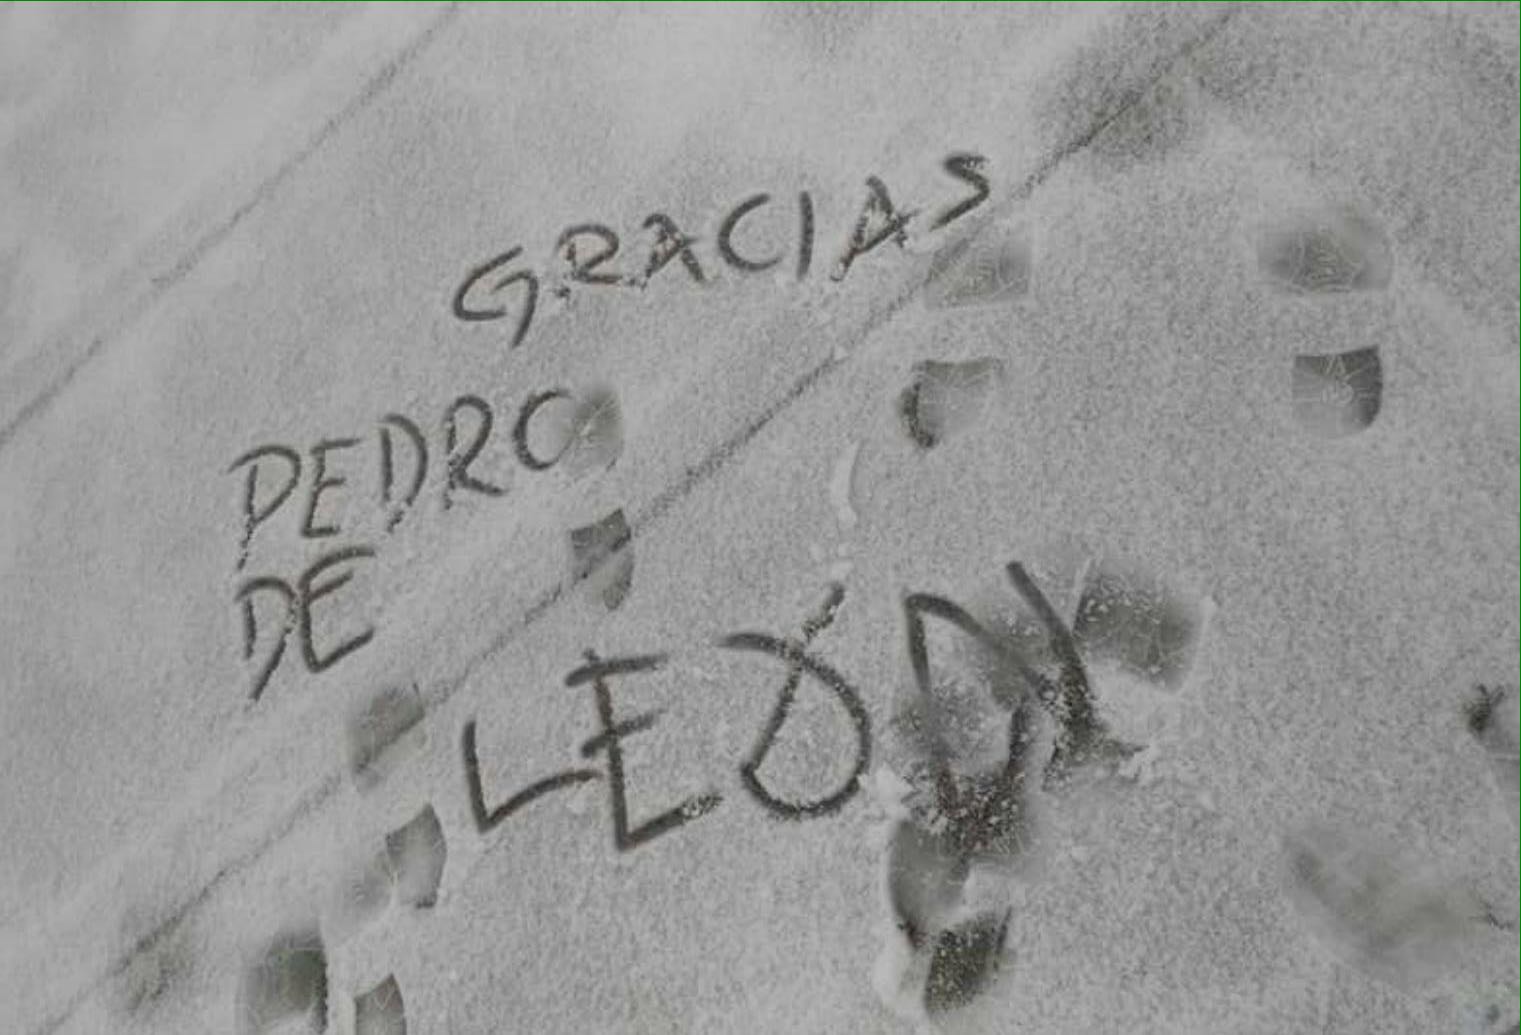 GRACIAS
PEDRO
DE
LEÓN